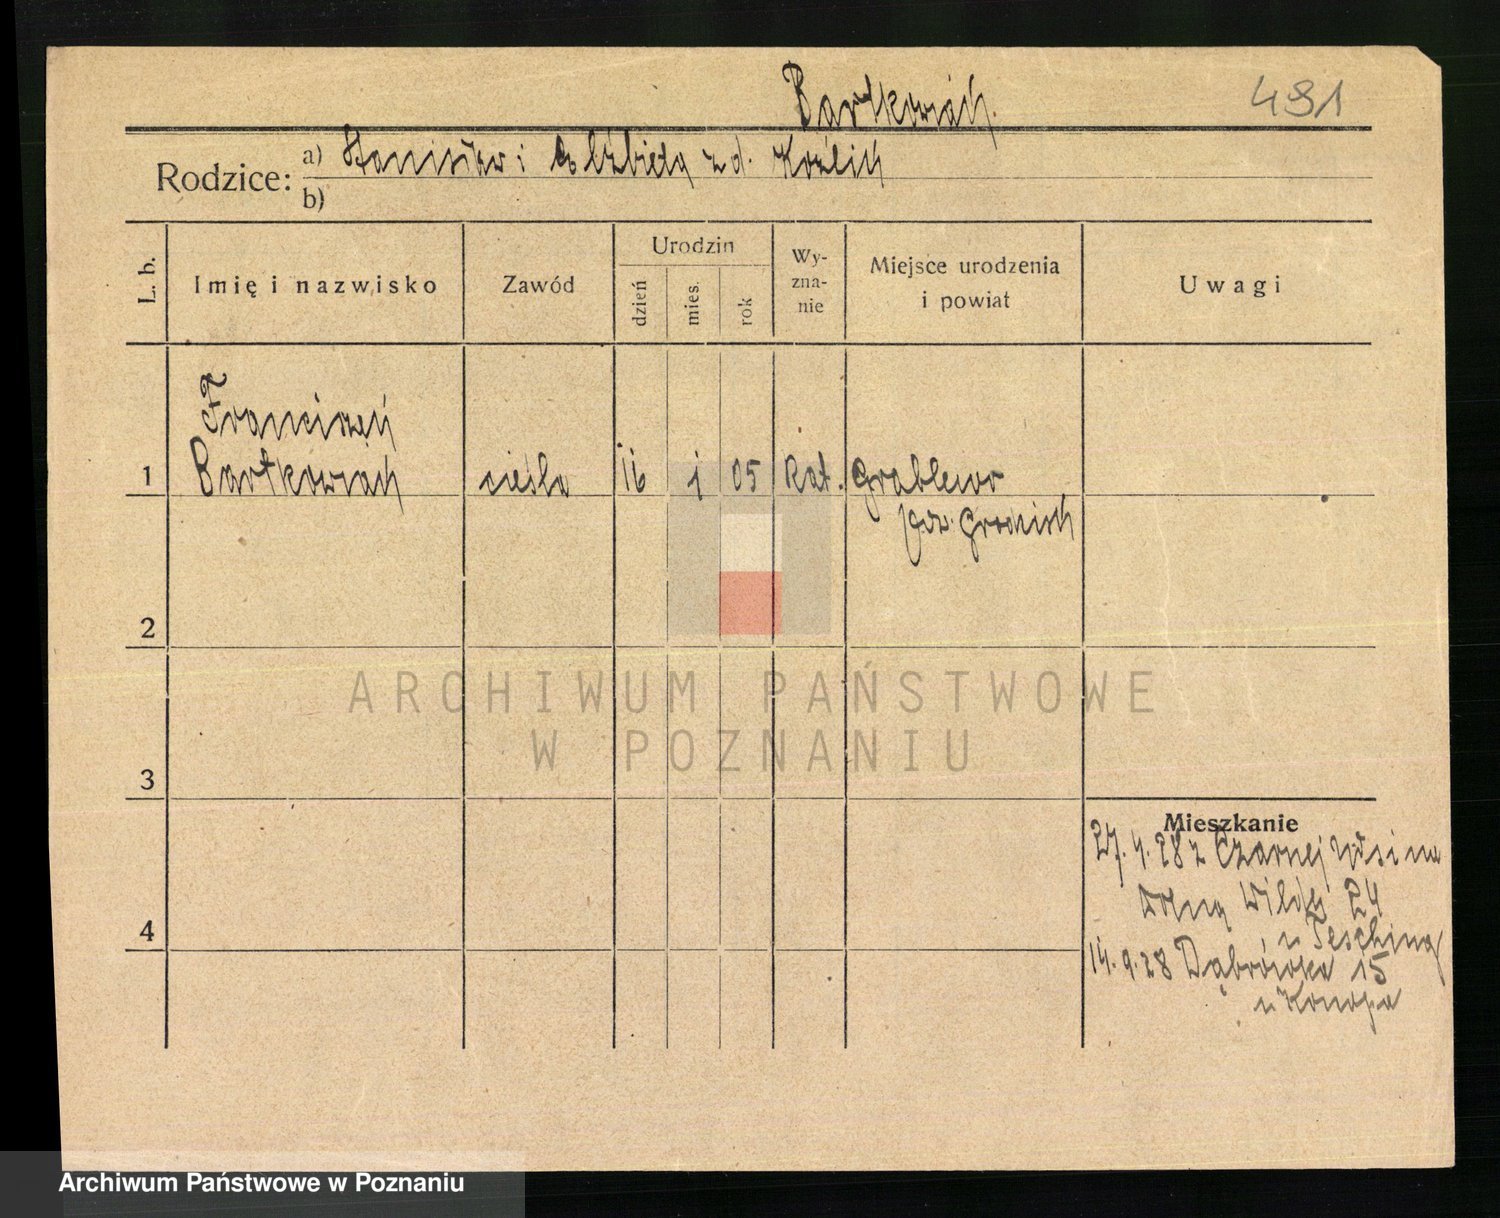 Bartkowiak.
491
Rodzice:
a) Stanisław i Elżbieta z d. Koźlik
b)
L. b.
Imię i nazwisko
Zawód
Urodzin
dzień
mies.
rok
Wy-
zna-
nie
Miejsce urodzenia
i powiat
Uwagi
Franciszek
1 Bartkowiak cieśla 16 1 05 kat. Grablewo
pow. Grodzisk
2
ARCHIWUM PAŃSTWOWE
W POZNANIU
3
Mieszkanie
27.4.28 z Czarnej Wsi na
Dolną Wildę 24
4
u Tesching
14.9.28 Dąbrówka 15
u Konopa
Archiwum Państwowe w Poznaniu